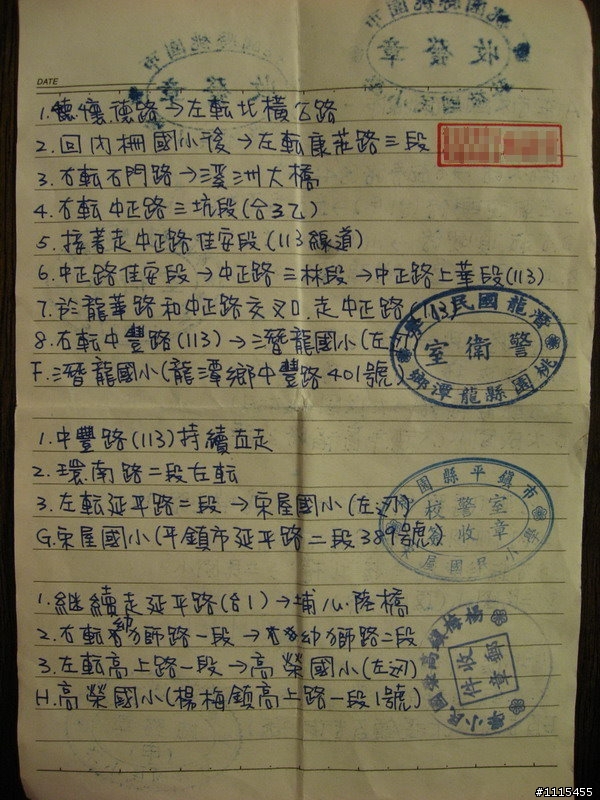 收發章
DATE
1. 懷德路→左転北橫公路
2. 回內柵國小後→左転康莊路三段
3. 右転石門路→溪洲大橋
4. 右転中正路三坑段(台3乙)
5. 接著走中正路佳安段(113線道)
6. 中正路佳安段→中正路三林段→中正路上華段(113)
7. 於龍華路和中正路交叉口,走中正路(113)
8. 右転中豐路(113)→潛龍國小(左
F. 潛龍國小(龍潭鄉中豐路401號)
桃園縣龍潭鄉
潛龍國民小學
警衛室
1. 中豐路(113)持續直走
2. 環南路二段左転
3. 左転延平路二段→宋屋國小(左
G. 宋屋國小(平鎮市延平路二段389號)
桃園縣平鎮市
宋屋國
校警室
收章
1. 繼續走延平路(台1)→埔心陸橋
2. 右転幼獅路一段→幼獅路二段
3. 左転高上路一段→高榮國小(左
H. 高榮國小(楊梅鎮高上路一段1號)
楊梅鎮高榮國民小學
郵件收章
#1115455